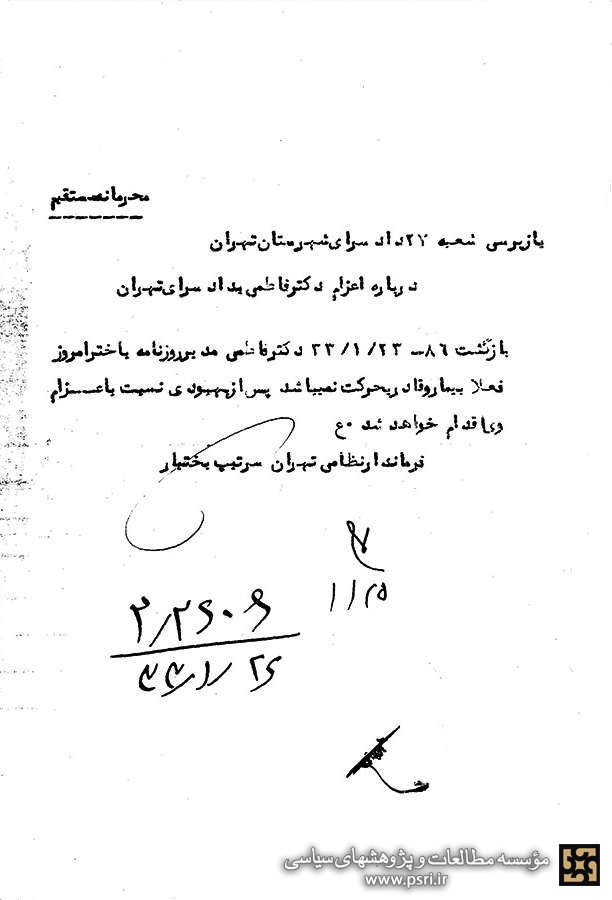 محرمانه مستقیم
بازپرسی شعبه ۲۷ داد سرای شهرستان تهران
درباره اعزام دکتر فاطمی بداد سرای تهران
بازگشت ۸۶ – ۲۳/۱/۲۳ دکتر فاطمی مدیر روزنامه باختر امروز
فعلا بیمار وقادر بحرکت نمیباشد پس از بهبودی نسبت باعـــزام
وی اقدام خواهد شد ۰ع
فرماندار نظامی تهران سرتیپ بختیار
۱/۲۵
مؤسسه مطالعات و پژوهشهای سیاسی
www.psri.ir